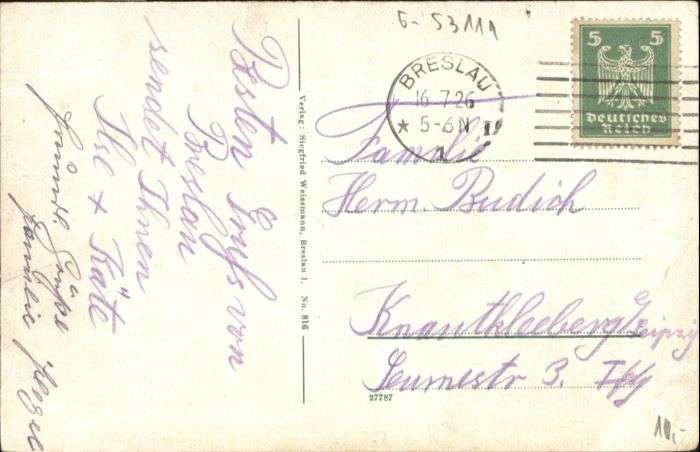 G-53111
BRESLAU
16.7.26
★ 5-6 N
1
5 5
Deutsches
Reich
Besten Gruß von
Breslau
sendet Ihnen
Ilse + Käte
freundl. Grüße
Familie
Verlag: Siegfried Weissmann, Breslau I. No. 816
Familie
Herm. Budich
Knautkleeberg/Leipzig
Seumestr 3.
27787
10,-